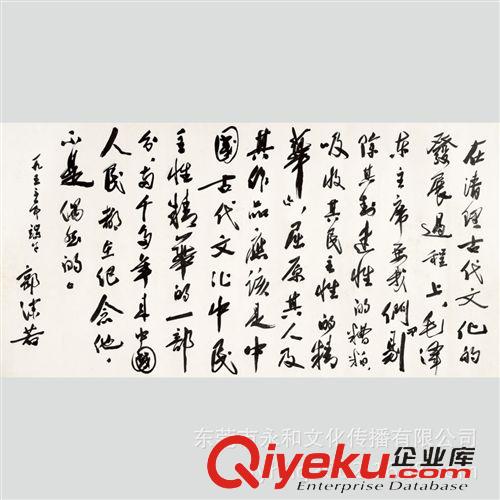 在清理古代文化的
發展過程上，毛澤
东主席要我們剔
除其封建性的糟粕，
吸收其民主性的精
華。屈原其人及
其作品應該是中
國古代文化中民
主性精華的一部
分，两千多年来中國
人民都在纪念他，
不是偶然的。
一九五三年端午
郭沫若
东莞市永和文化传播有限公司
Qiyeku.com 企业库
Enterprise Database